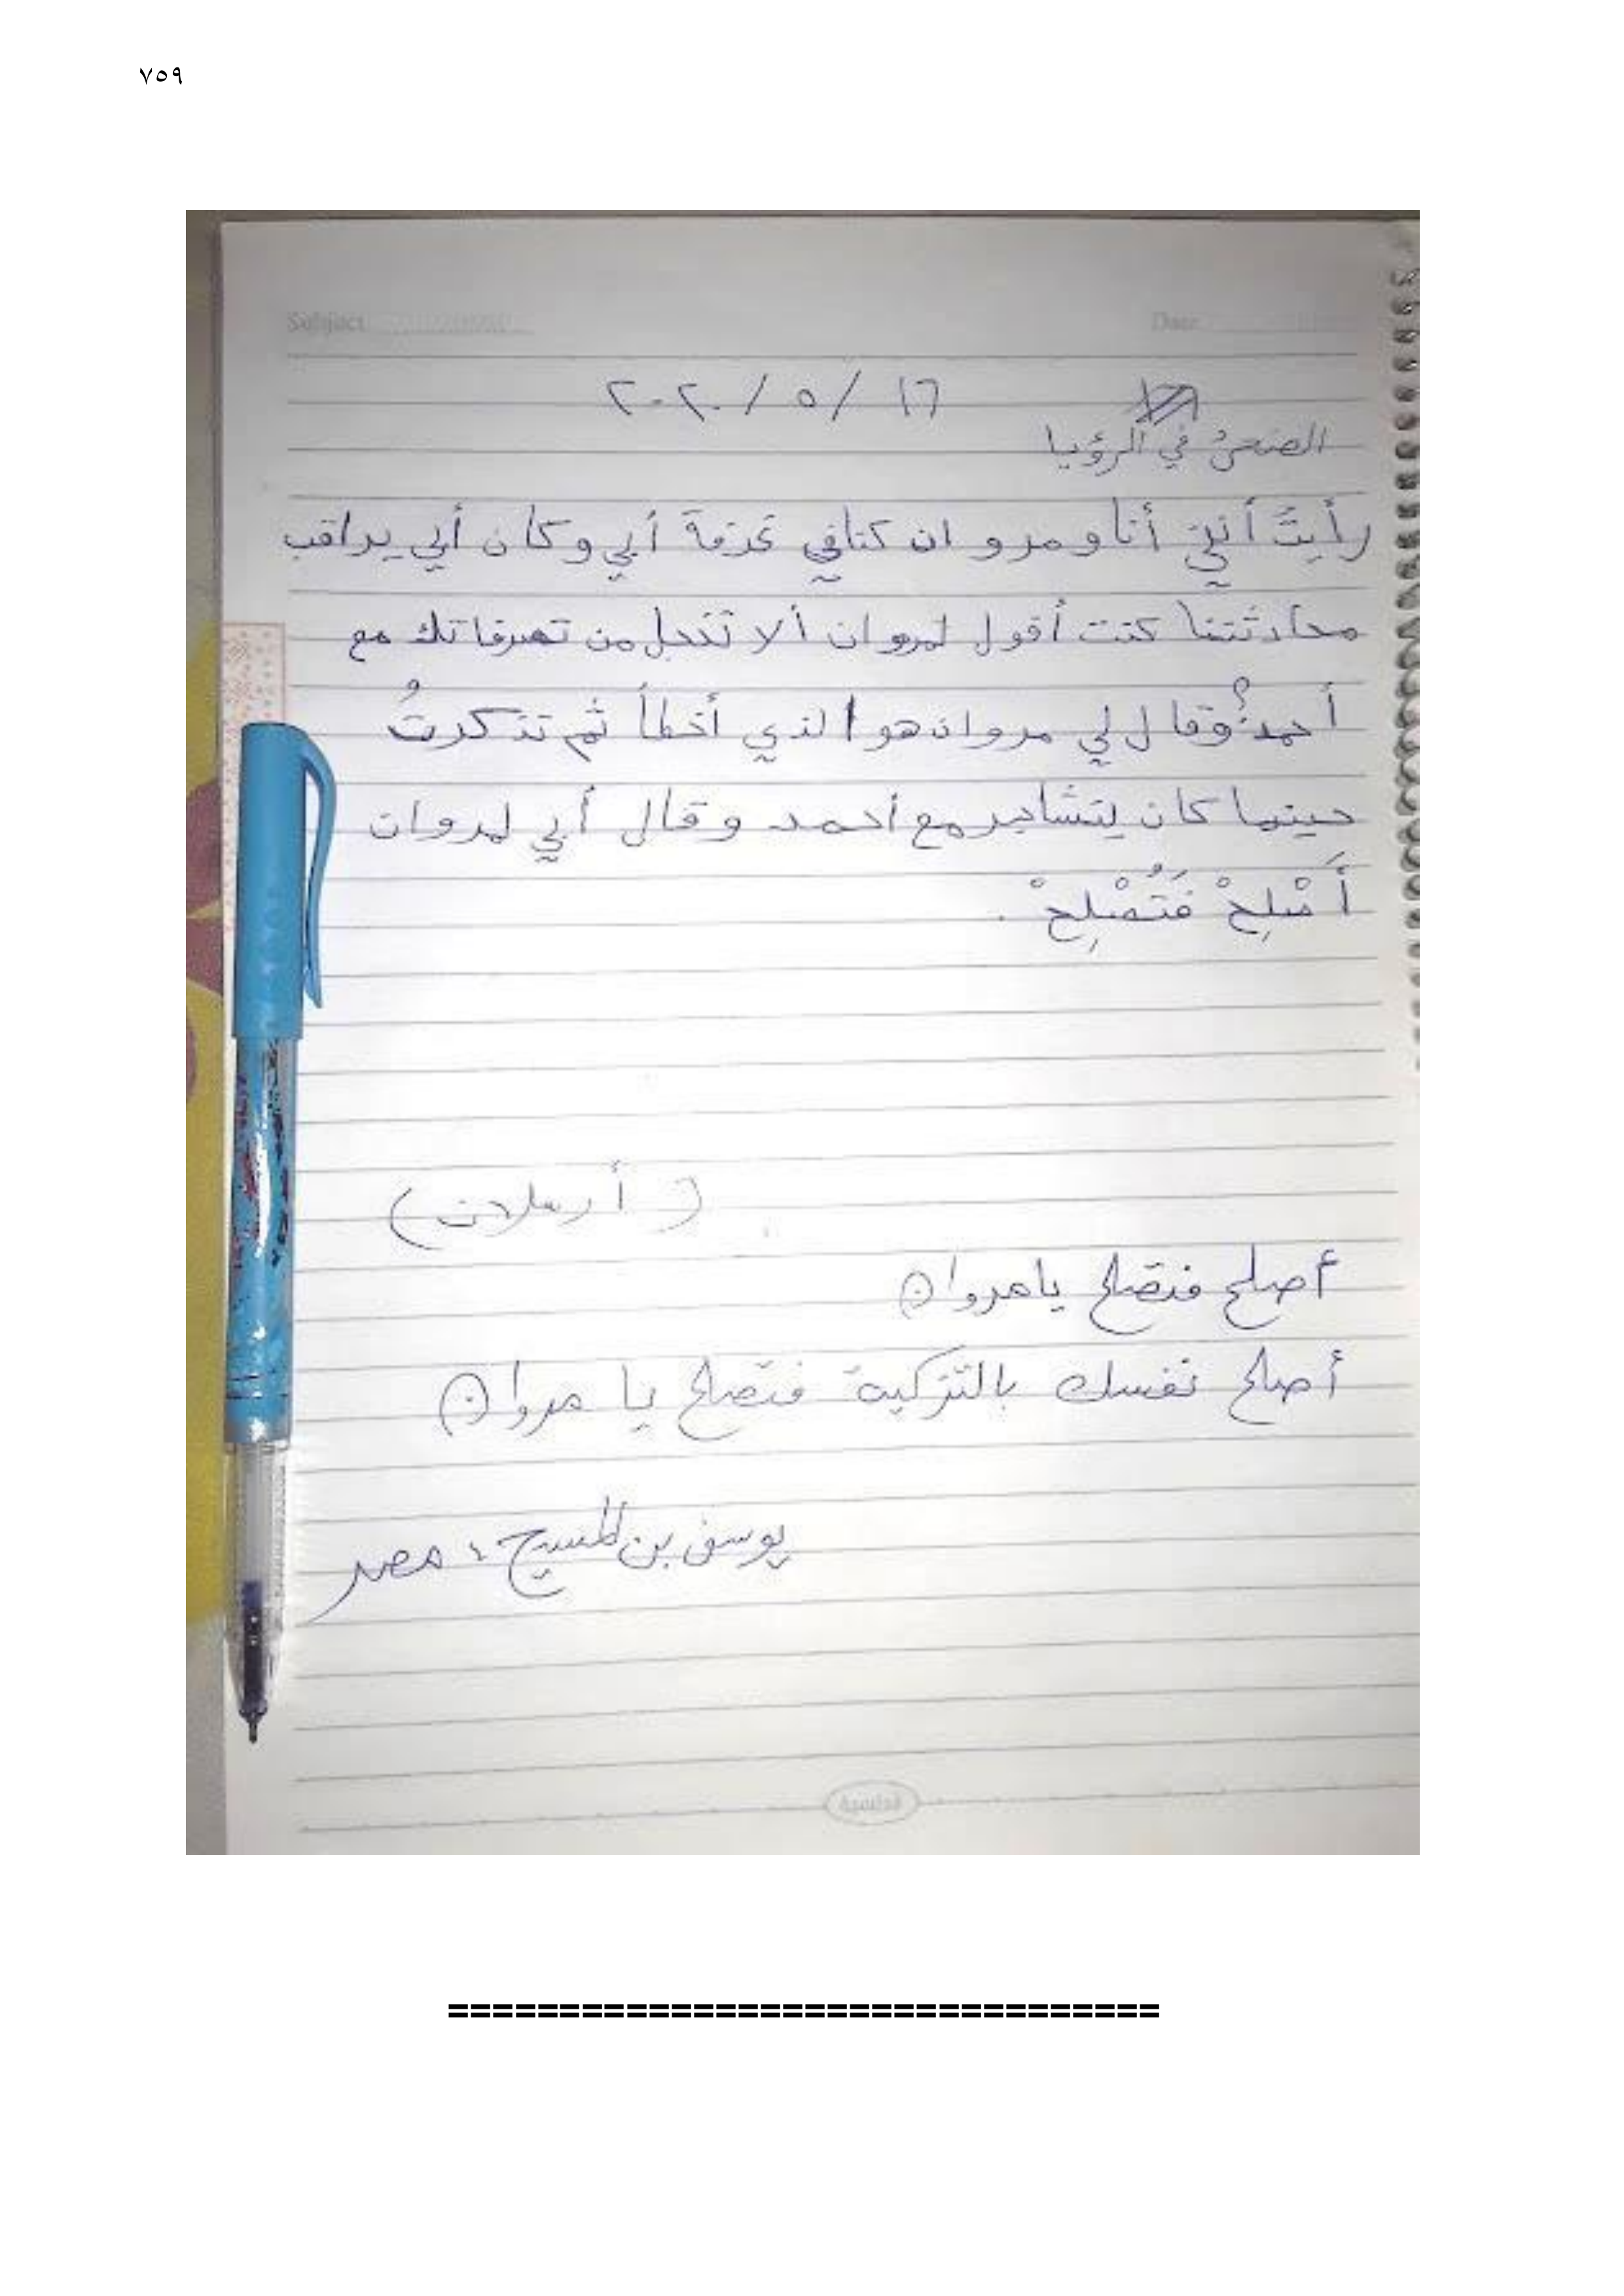 ٧٥٩
Subject
Date
١٦ / ٥ / ٢٠٢٠
في الرؤيا
رأيتُ أنني أنا و مروان كنا في غرفة أبي و كان أبي يراقب
محادثتنا كنت أقول لمروان ألا تخجل من تصرفاتك مع
أحمد؟ وقال لي مروان هو الذي أخطأ ثم تذكرتُ
حينما كان يتشاجر مع أحمد و قال أبي لمروان
أَصْلِحْ فَتُصْلِحْ .
( أرسلان )
أصلح فتصلح يا مروان
أصلح نفسك بالتزكية فتصلح يا مروان
يوسف بن المسيح ، مصر
===============================